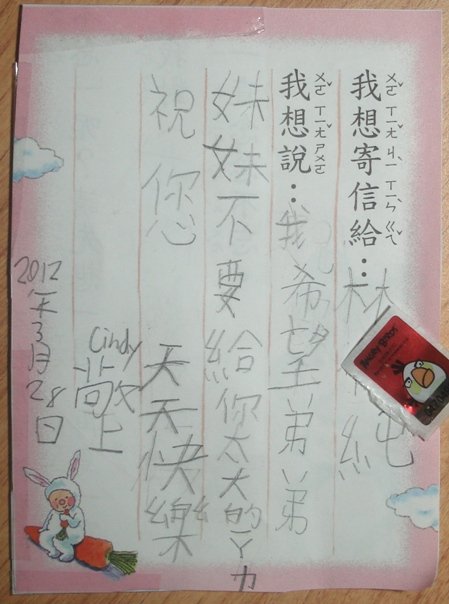 我想寄信給：林純
ㄨㄛˇ ㄒㄧㄤˇ ㄐㄧˋ ㄒㄧㄣˋ ㄍㄟˇ
我想說：我希望弟弟
ㄨㄛˇ ㄒㄧㄤˇ ㄕㄨㄛ
妹妹不要給你太大的ㄚ力
祝您天天快樂
Cindy敬上
2012年3月28日
ANGRY BIRDS